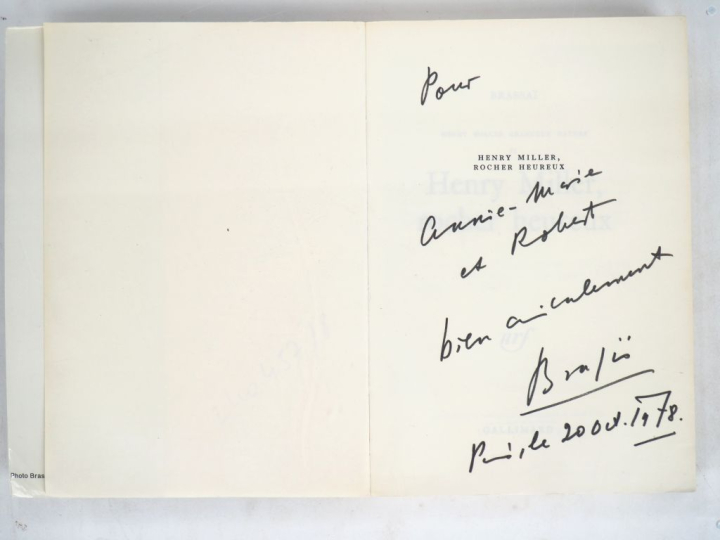 Pour
HENRY MILLER,
ROCHER HEUREUX
Annie-Marie
et Robert
bien amicalement
Brassaï
Paris, le 20 Oct. 1978.
Photo Bras
BRASSAÏ
Henry Miller,
rocher heureux
nrf
GALLIMARD